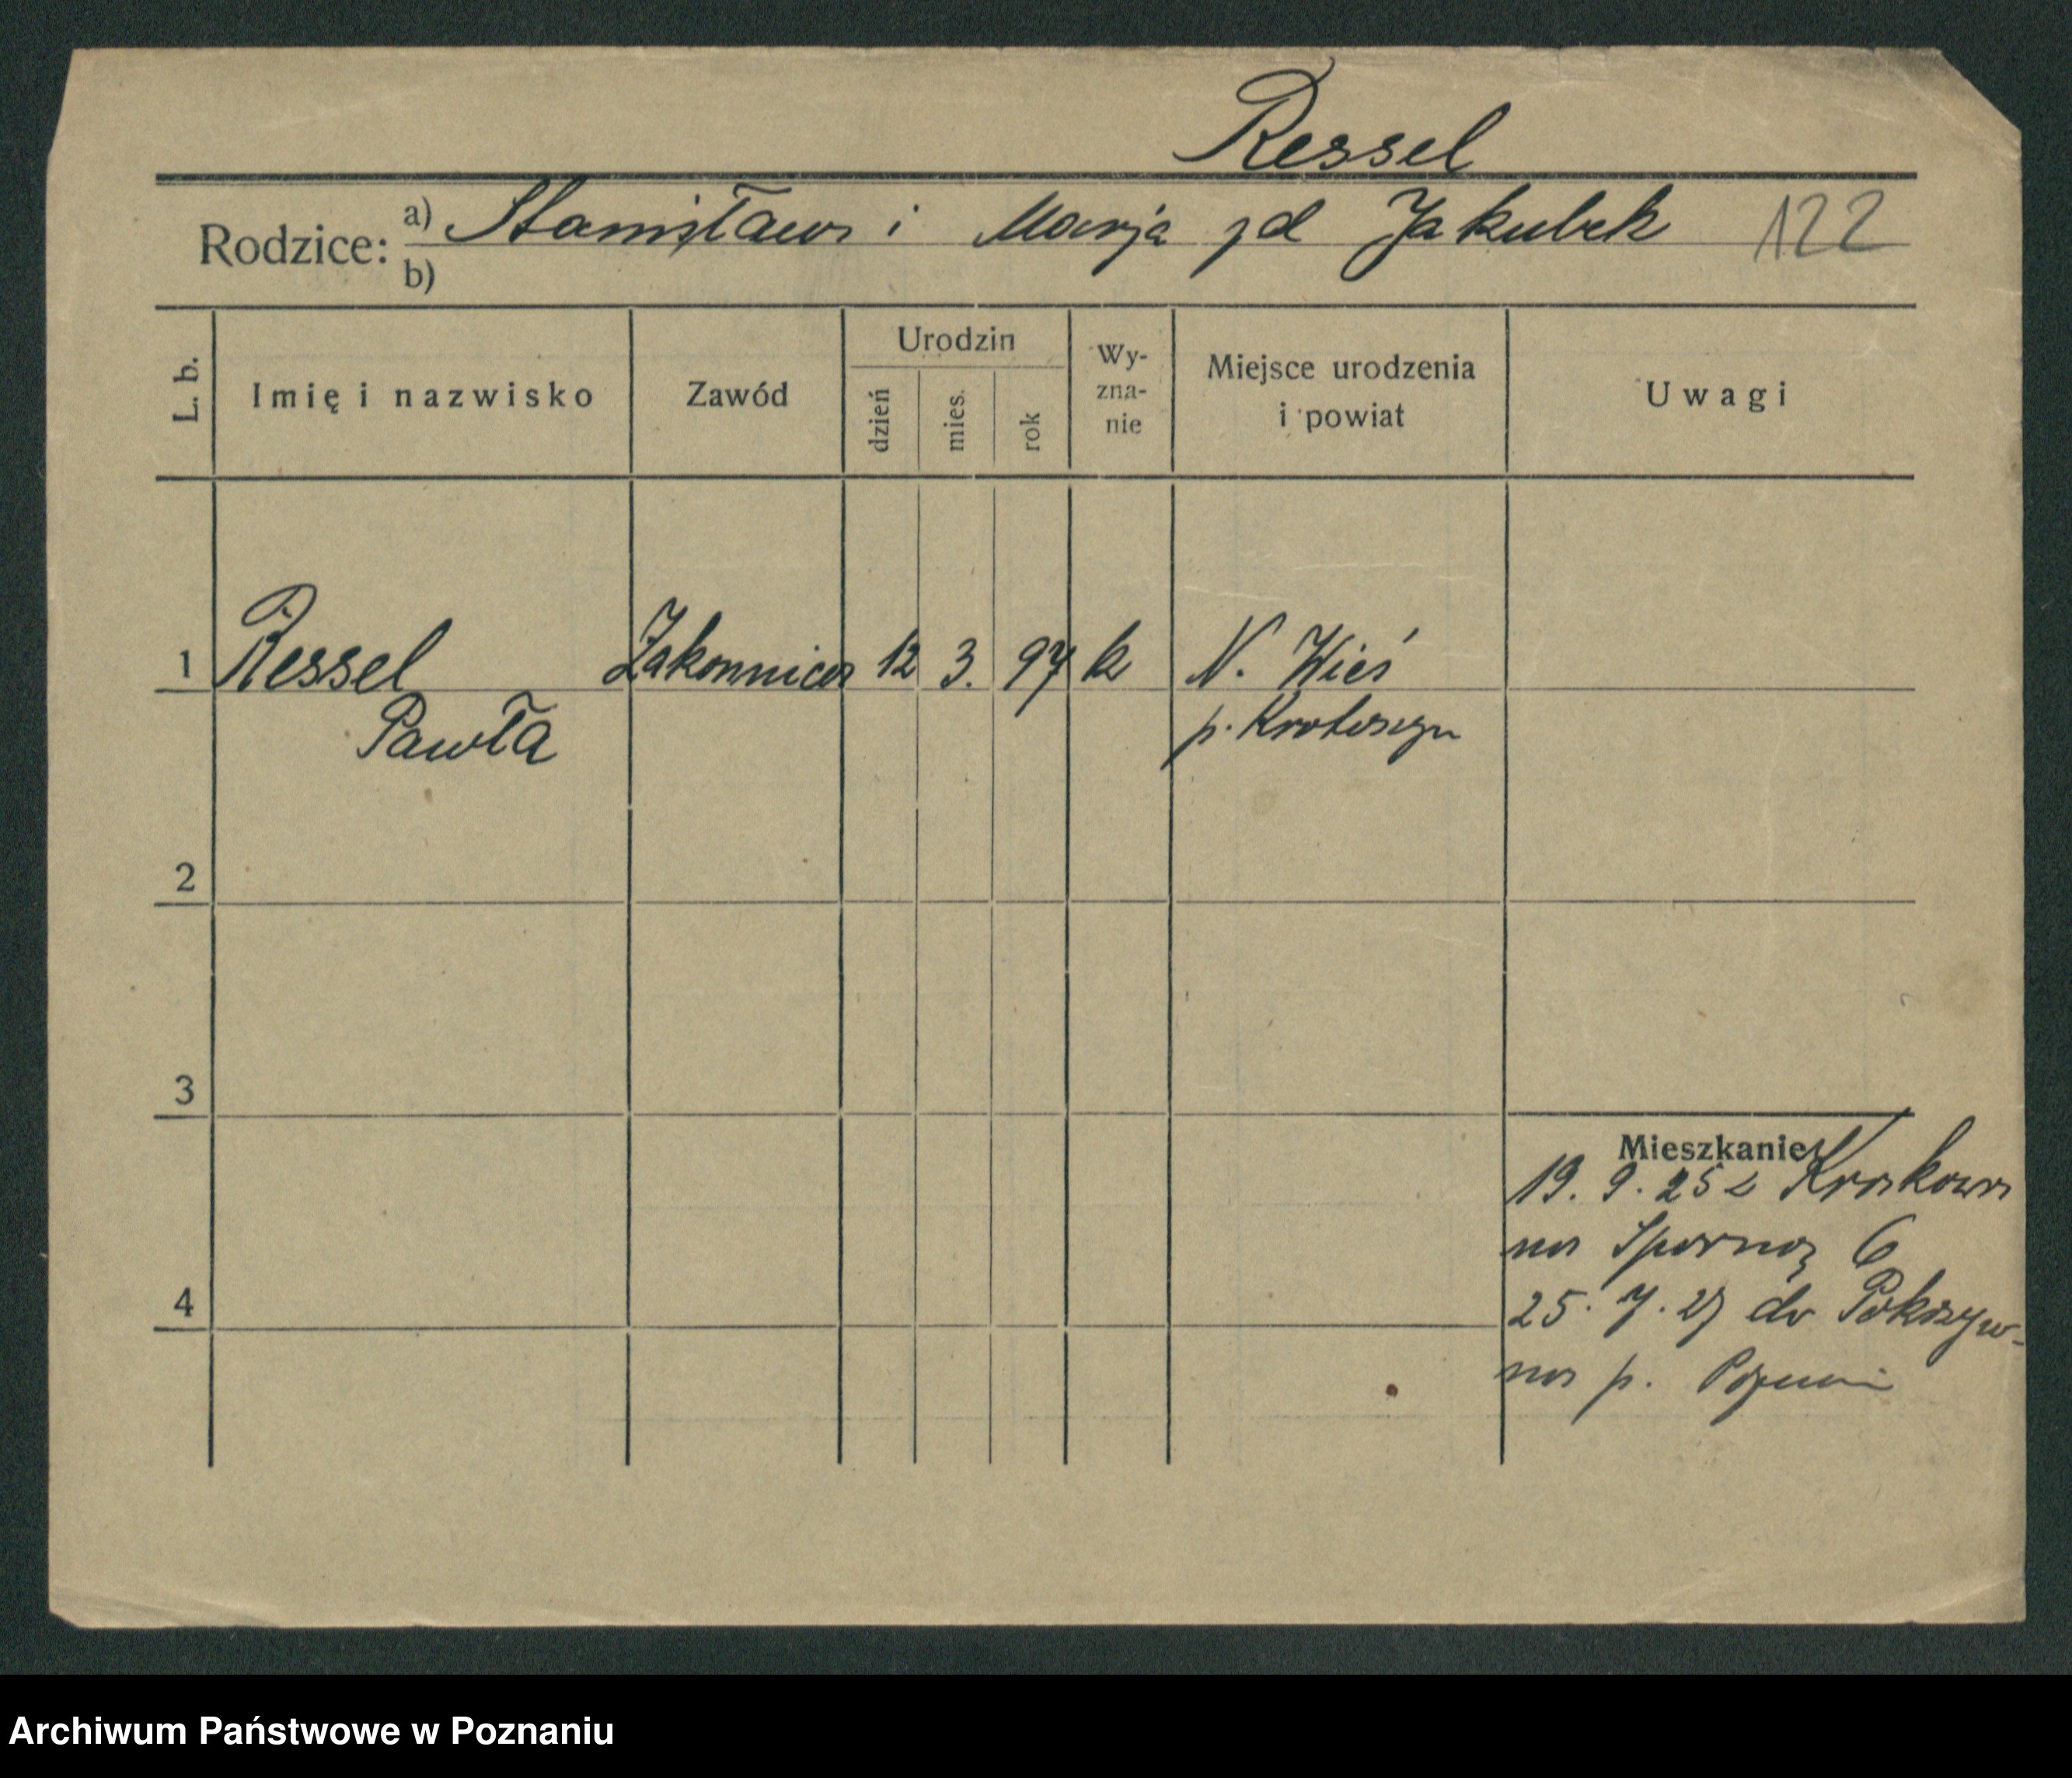 Ressel
Rodzice: a) Stanisław i Marja zd Jakubek 122
b)
L. b. Imię i nazwisko Zawód Urodzin dzień mies. rok Wy-zna-nie Miejsce urodzenia i powiat Uwagi
1 Ressel Zakonnica 12 3. 97 k N. Wieś
Pawła p. Krotoszyn
2
3
Mieszkanie
19. 9. 25 z Krakowa
na Sporną 6
4
25. 7. 27 do Pokrzyw-
na p. Poznań
Archiwum Państwowe w Poznaniu